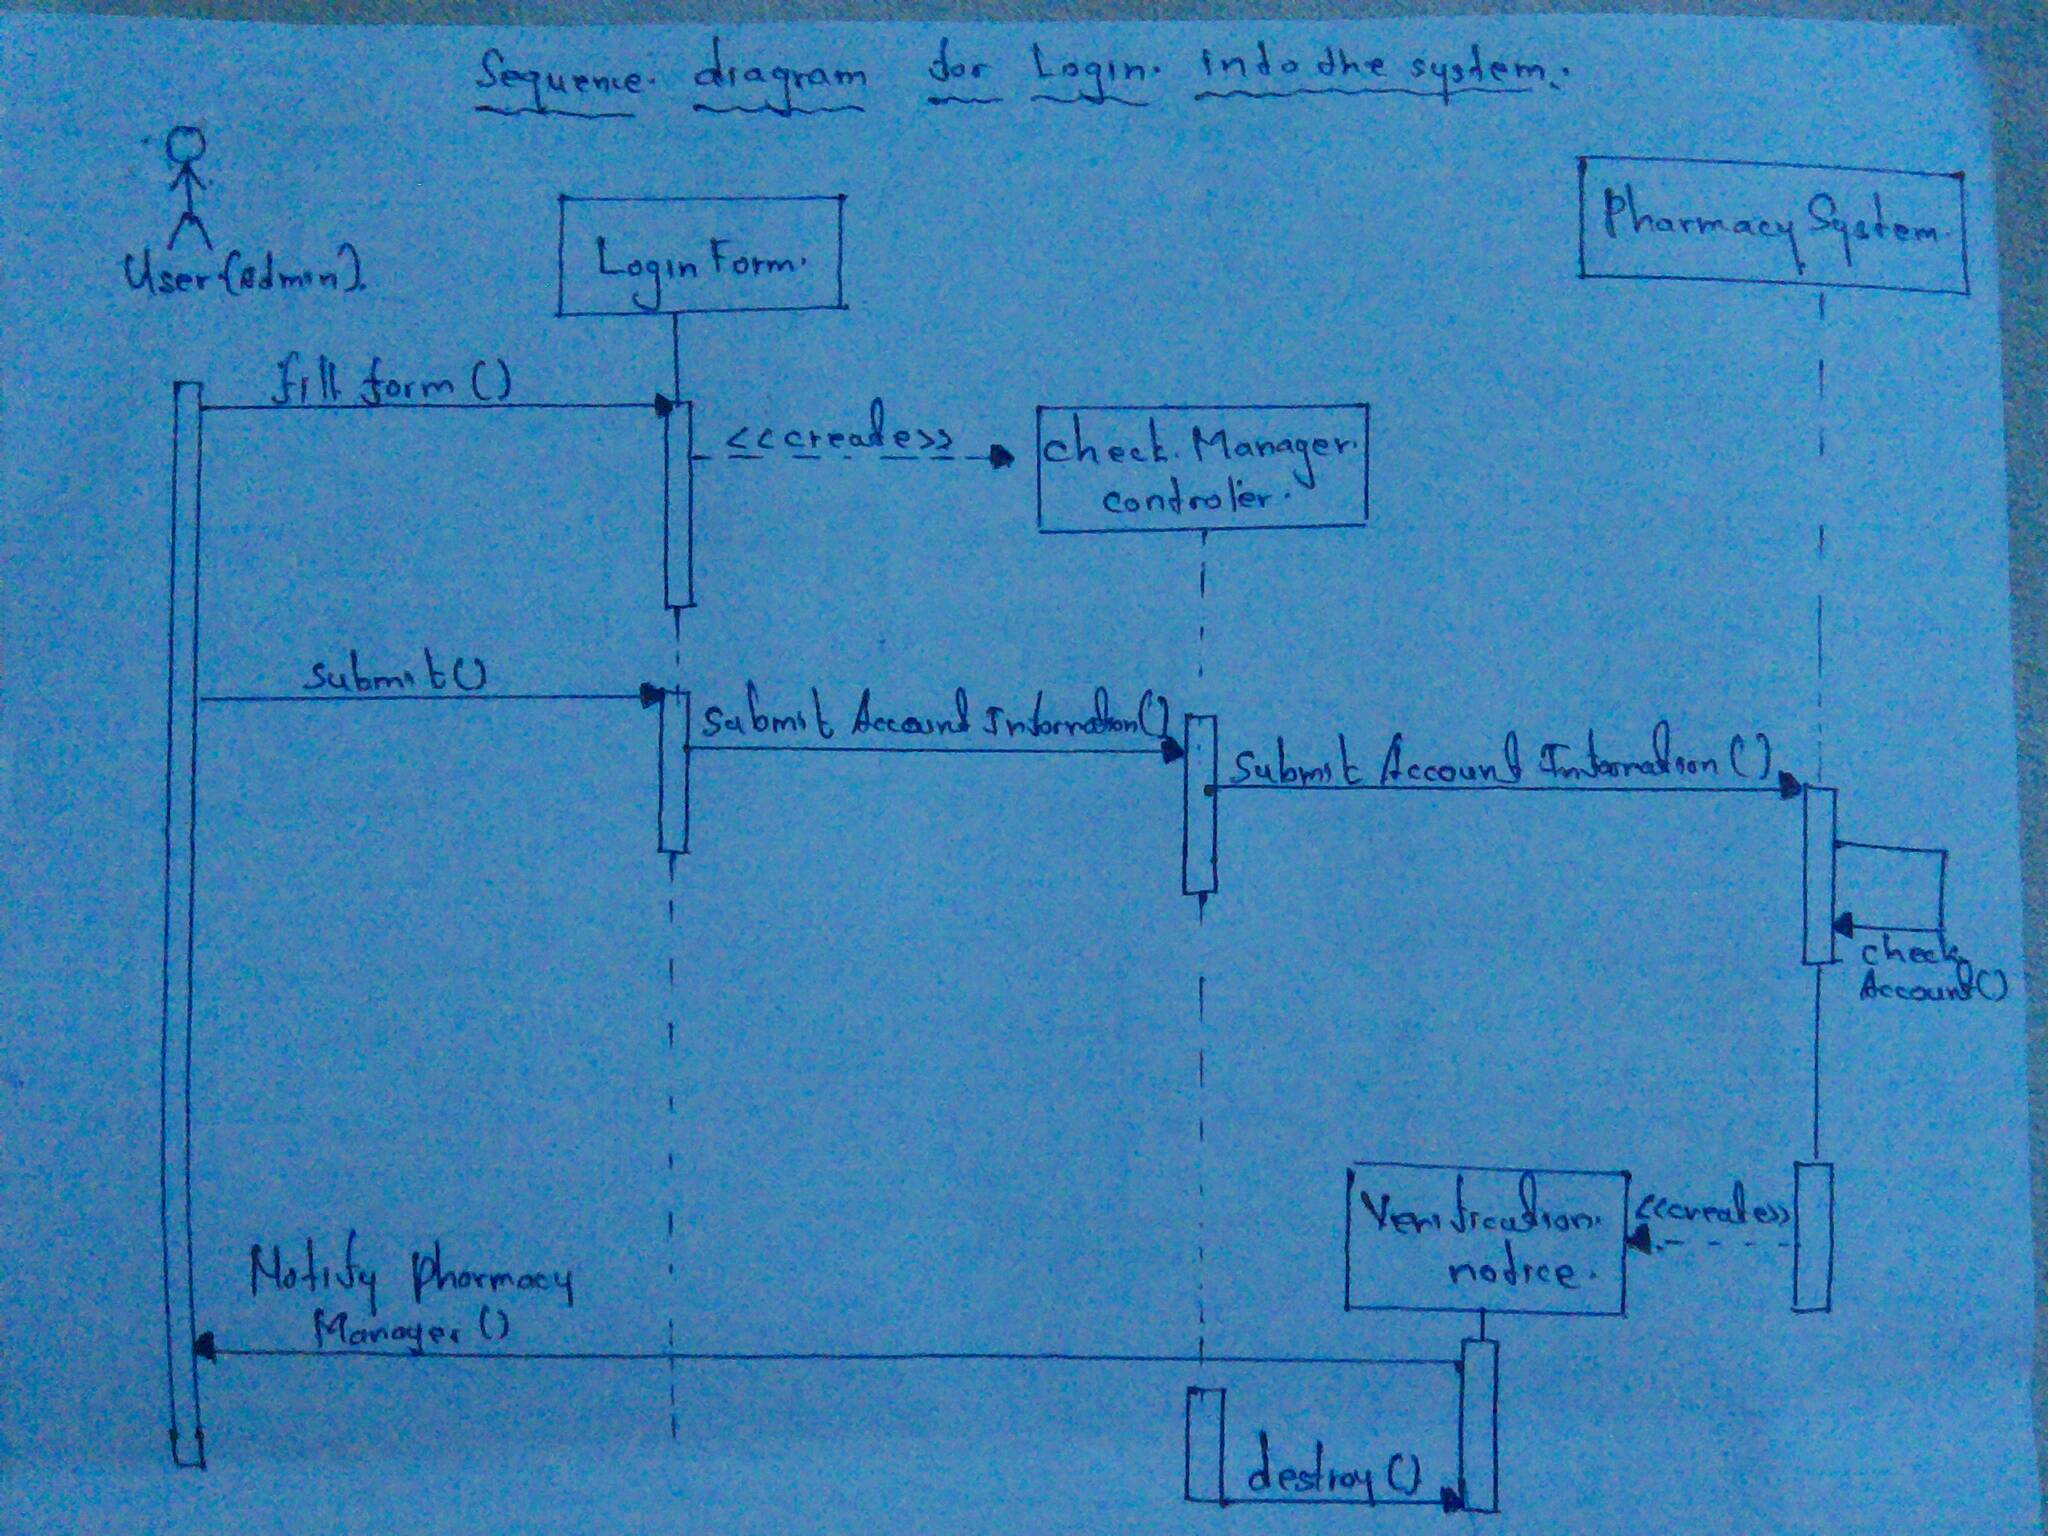 Sequence diagram for Login into the system.
User(Admin).
Login Form.
Pharmacy System.
fill form ()
<<create>>
check Manager.
controler.
submit()
submit Account Information()
submit Account Information()
check
Account()
Verification
notice.
<<create>>
Notify pharmacy
Manager ()
destroy ()